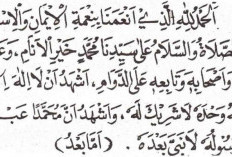 اَلْحَمْدُ لِلّٰهِ الَّذِيْ اَنْعَمَنَا بِنِعْمَةِ الْاِيْمَانِ وَالْاِسْ
صَّلَاةُ وَالسَّلَامُ عَلَى سَيِّدِنَا مُحَمَّدٍ خَيْرِ الْاَنَامِ، وَعَ
وَاَصْحَابِهِ وَتَابِعِهِ عَلَى الدَّوَامِ، اَشْهَدُ اَنْ لَا اِلٰهَ اِ
هُ وَحْدَهُ لَا شَرِيْكَ لَهُ، وَاَشْهَدُ اَنَّ مُحَمَّدًا عَبْ
سُوْلُهُ لَا نَبِيَّ بَعْدَهُ. (اَمَّا بَعْدُ)